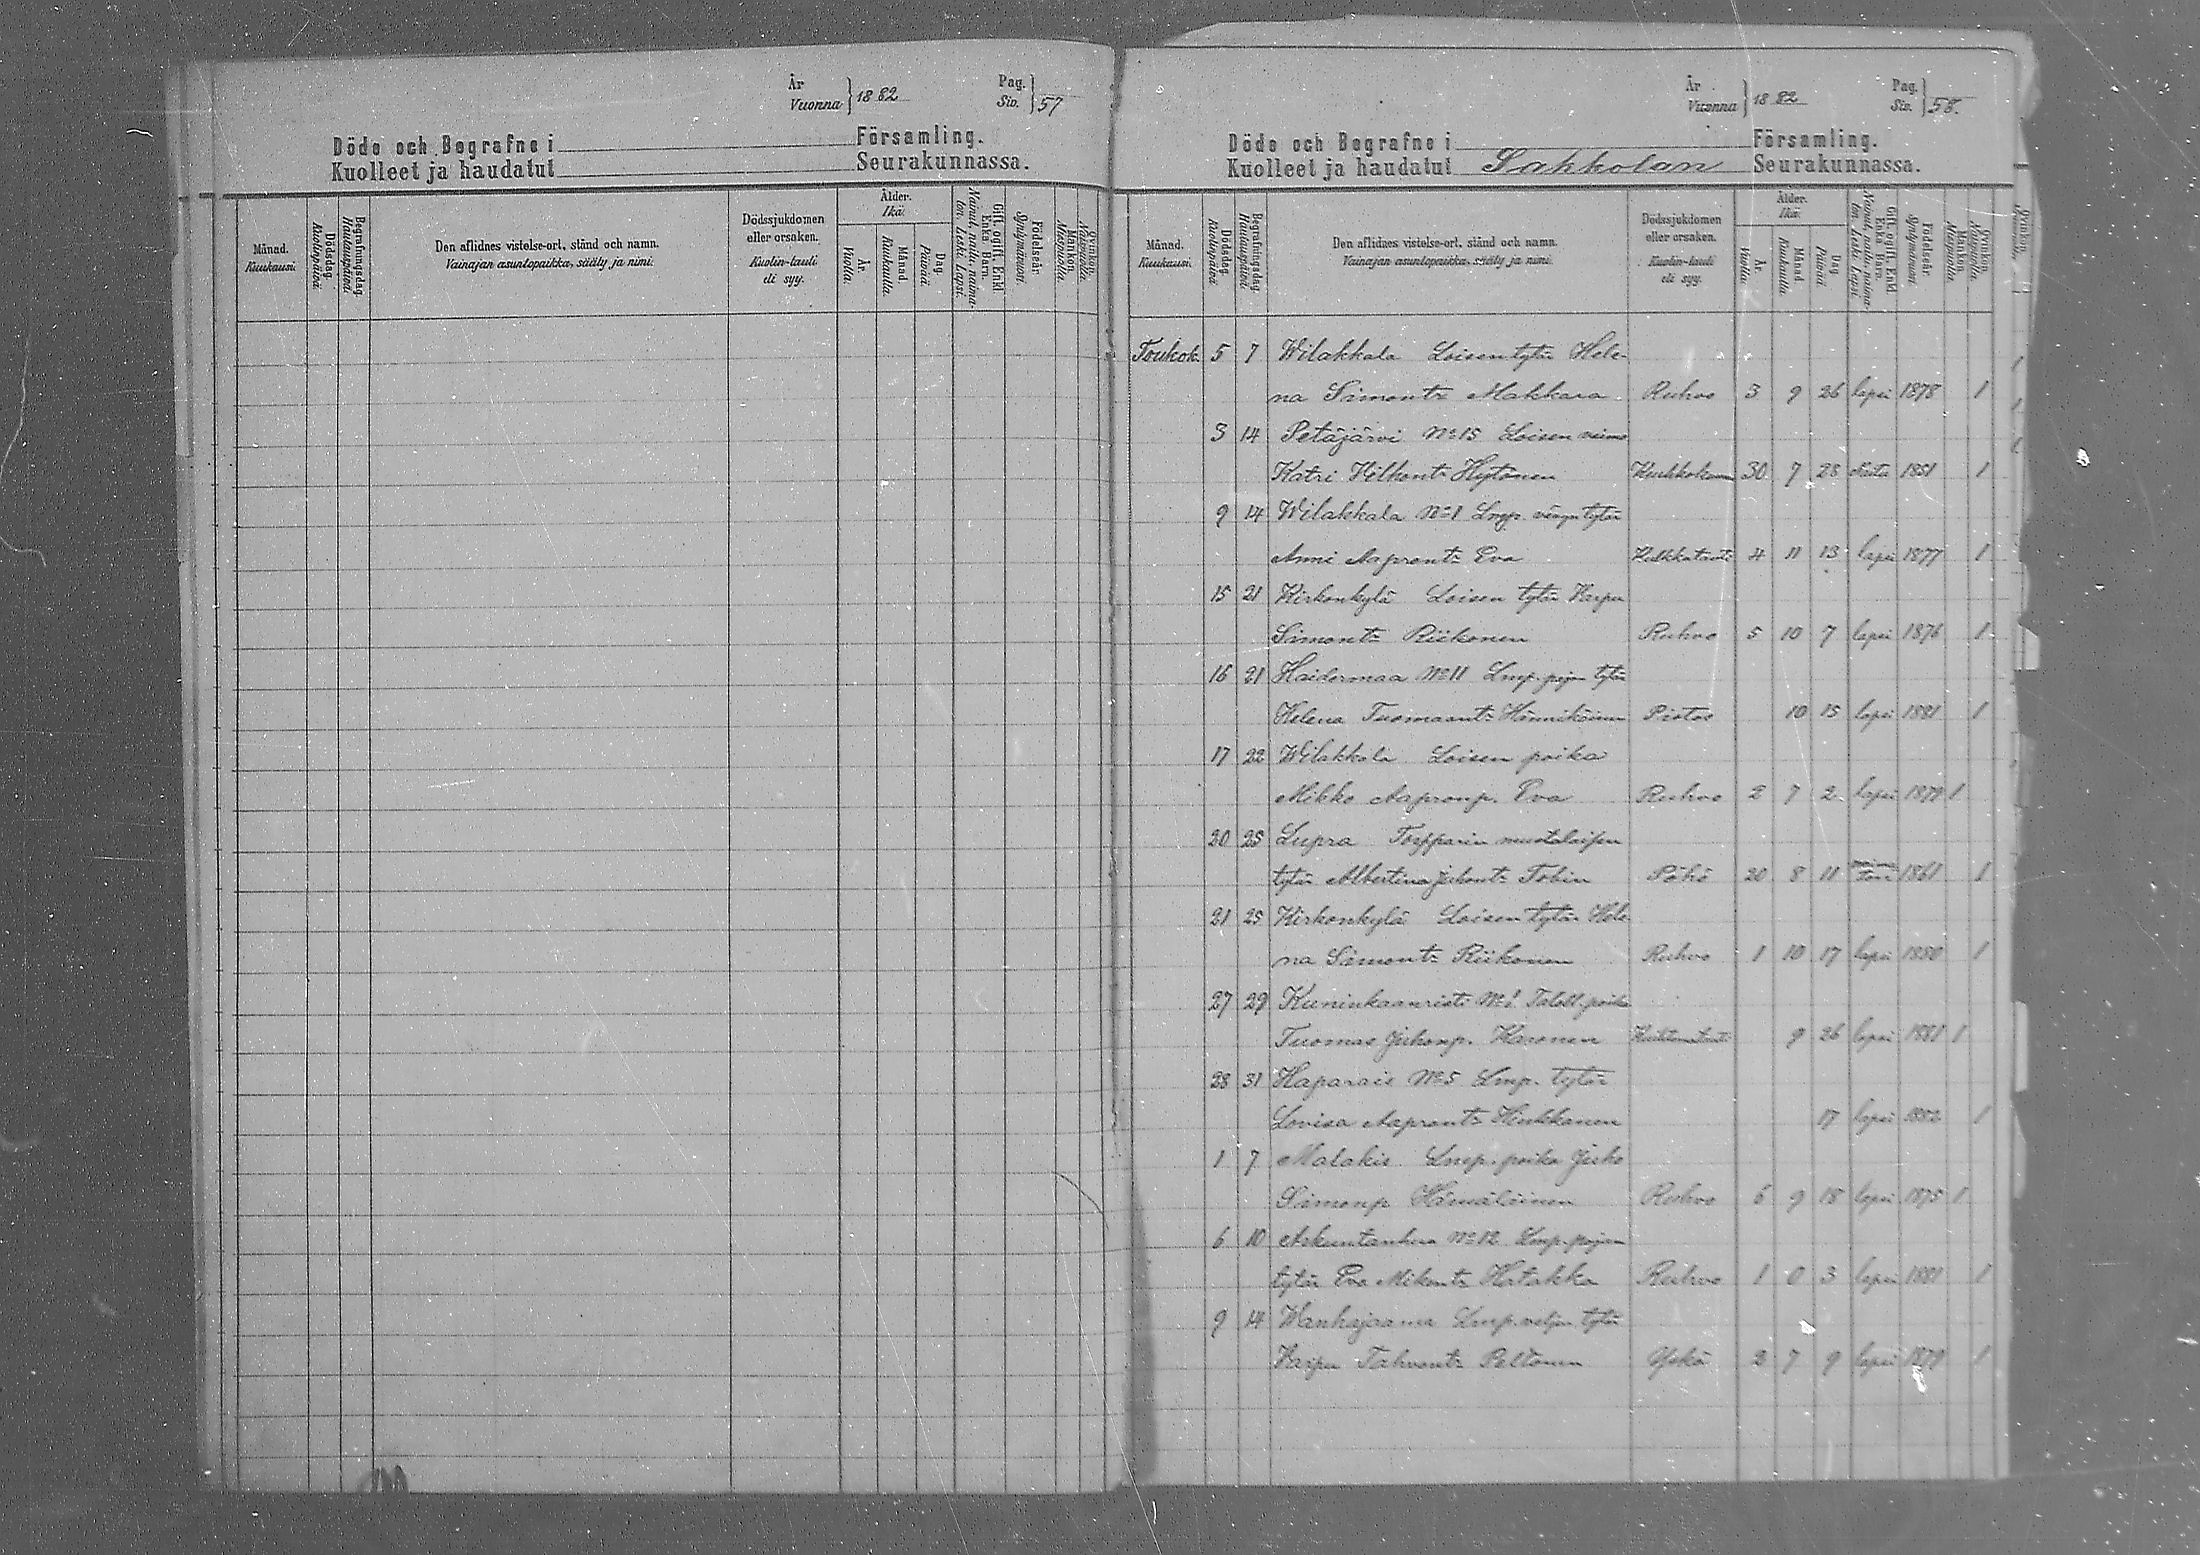 År Vuonna } 1882 Pag. Siv. } 57
Döde och Begrafne i Församling.
Kuolleet ja haudatut Seurakunnassa.
Månad. Kuukausi. Dödsdag. Kuolinpäivä. Begrafningsdag. Hautauspäivä Den aflidnes vistelse-ort, stånd och namn. Vainajan asuntopaikka, sääty ja nimi. Dödssjukdomen eller orsaken. Kuolin-tauti eli syy. Ålder. Ikä. År. Vuotta. Månad. Kuukautta. Dag. Päivää Gift, ogift, Enkl. Enka Barn. Nainut, naitu, naimaton. Leski. Lapsi. Födelseår. Syntymävuosi. Mankön. Miespuolia. Qvinkön. Naispuolia.
År Vuonna } 1882 Pag. Siv. } 58.
Döde och Begrafne i Församling.
Kuolleet ja haudatut Sakkolan Seurakunnassa.
Månad. Kuukausi. Dödsdag. Kuolinpäivä Begrafningsdag. Hautauspäivä Den aflidnes vistelse-ort, stånd och namn. Vainajan asuntopaikka, sääty ja nimi. Dödssjukdomen eller orsaken. Kuolin-tauti eli syy. Ålder. Ikä. År. Vuotta. Månad. Kuukautta. Dag. Päivää Gift, ogift, Enkl. Enka Barn. Nainut, naitu, naimaton. Leski. Lapsi. Födelseår. Syntymävuosi. Mankön. Miespuolia. Qvinkön. Naispuolia.
Toukok. 5 7 Wilakkala Loisen tytär Hele-
na Simont: Makkara Ruhvo 3 9 26 lapsi 1878 1
3 14 Petäjärvi No 15 Loisen vaimo
Katri Hilkont: Hytönen 30 7 28 1851 1
9 14 Wilakkala No 1 Lmp. tytär
Anni Aapront: Eva 4 11 13 lapsi 1877 1
15 21 Kirkonkylä Loisen tytär Karpu
Simont: Riikonen Ruhvo 5 10 7 lapsi 1876 1
16 21 Haidermaa No 11 Lmp. pojan tytär
Helena Tuomaant: Hännikäinen Pistos 10 15 lapsi 1881 1
17 22 Wilakkala Loisen poika
Mikko Aapronp. Eva Ruhvo 2 7 2 lapsi 1879 1
20 25 Lupra Torpparin mustalaisen
tytär Albertina Juhont: Tobin Pöhö 20 8 11 1861 1
21 25 Kirkonkylä Loisen tytär Hele-
na Simont: Riikonen Ruhvo 1 10 17 lapsi 1880 1
27 29 Kuninkaanristi No 1 Talell. poika
Tuomas Juhonp. Karonen 9 26 lapsi 1881 1
28 31 Haparais No 5 Lmp. tytär
Lovisa Aapront: Hinkkanen 17 lapsi 1882 1
1 7 Malakis Lmp. poika Juho
Simonp Hämäläinen Ruhvo 6 9 18 lapsi 1875 1
6 10 No 12 Lmp. pojan
tytär Eva Mikont: Hatakka Ruhvo 1 0 3 lapsi 1881 1
9 14 Hankajaama Lmp. veljen tytär
Karpu Tahvont: Peltonen Yskä 2 7 9 lapsi 1879 1